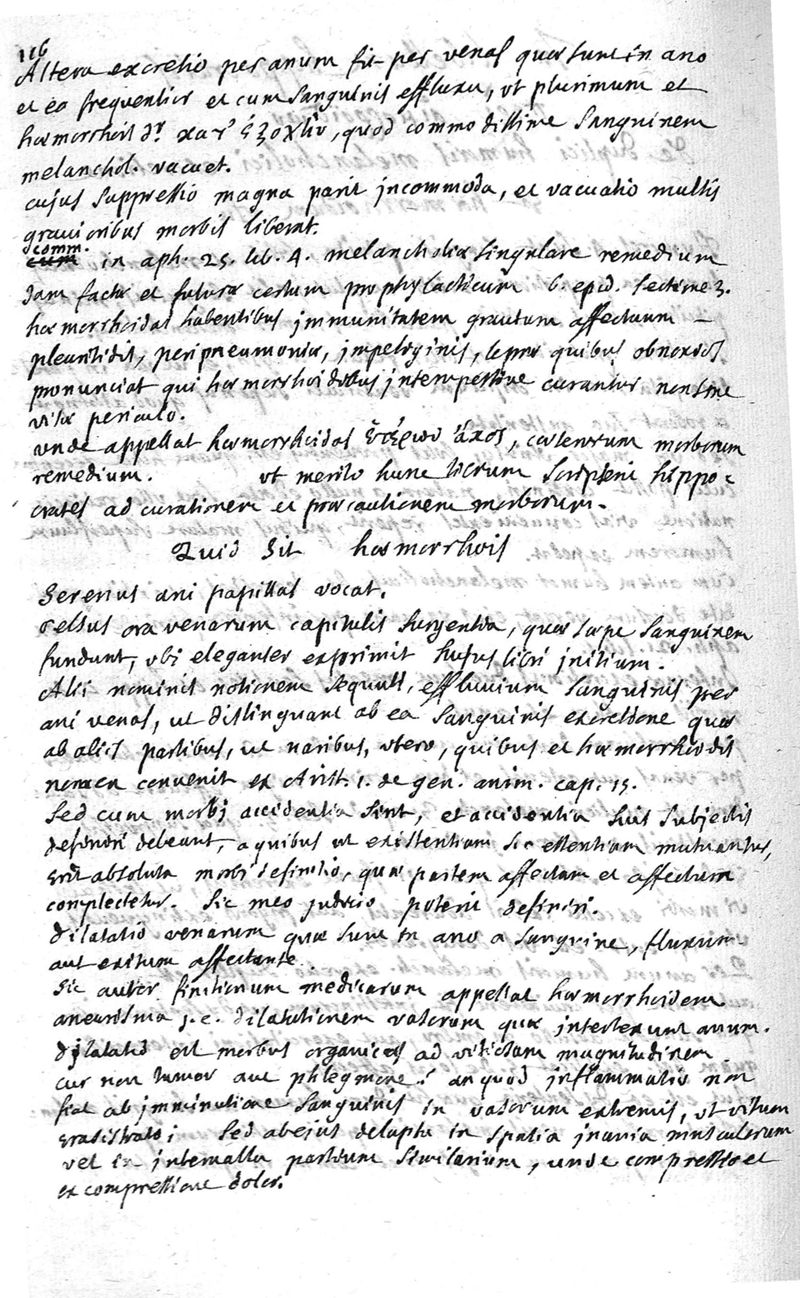 116
Altera excretio per anum fit per venas quae sunt in ano
et ea frequentior et cum sanguinis effluxu, ut plurimum et
haemorrhois dr. κατ' ἐξοχὴν, quod commodissime sanguinem
melanchol. vacuet.
cujus suppressio magna parit incommoda, et vacuatio multis
gravioribus morbis liberat.
comm.
in aph. 25. lib. 4. melancholiae singulare remedium
jam factae et futurae certum prophylacticum 6. epid. sectione 3.
haemorrhoidas habentibus immunitatem gravium affectuum –
pleuritidis, peripneumoniae, impetiginis, leprae quibus obnoxios
pronunciat qui haemorrhoidibus intempestive curantur non sine
vitae periculo.
unde appellat haemorrhoidas ἄκος, caeterorum morborum
remedium. ut merito hunc librum scripserit hippo-
crates ad curationem et praecautionem morborum.
Quid sit haemorrhois
Serenus ani papillas vocat.
Celsus ora venarum capitulis surgentia, quae saepe sanguinem
fundunt, ubi eleganter exprimit hujus libri initium.
Alii nominis notionem sequuti, effluvium sanguinis per
ani venas, ut distinguant ab ea sanguinis excretione quae
ab aliis partibus, ut naribus, utero, quibus et haemorrhoidis
nomen convenit ex Arist. 1. de gen. anim. cap. 19.
Sed cum morbi accidentia sint, et accidentia suis subjectis
definiri debeant, a quibus ut existentiam sic essentiam mutuantur,
erit absoluta morbi definitio, quae partem affectam et affectum
complectetur. Sic meo judicio poterit definiri.
dilatatio venarum quae sunt in ano a sanguine, fluxum
aut exitum affectante.
Sic autor finitionum medicarum appellat haemorrhoidem
aneurisma i. e. dilatationem vasorum quae intexunt anum.
dilatatio est morbus organicus ad vitiatam magnitudinem.
cur non tumor aut phlegmone? an quod inflammatio non
fiat ab imminutione sanguinis in vasorum extremis, ut visum
erasistrato; sed ab ejus delapsu in spatia inania musculorum
vel in intervalla partium similarium, unde compressio et
ex compressione dolor.